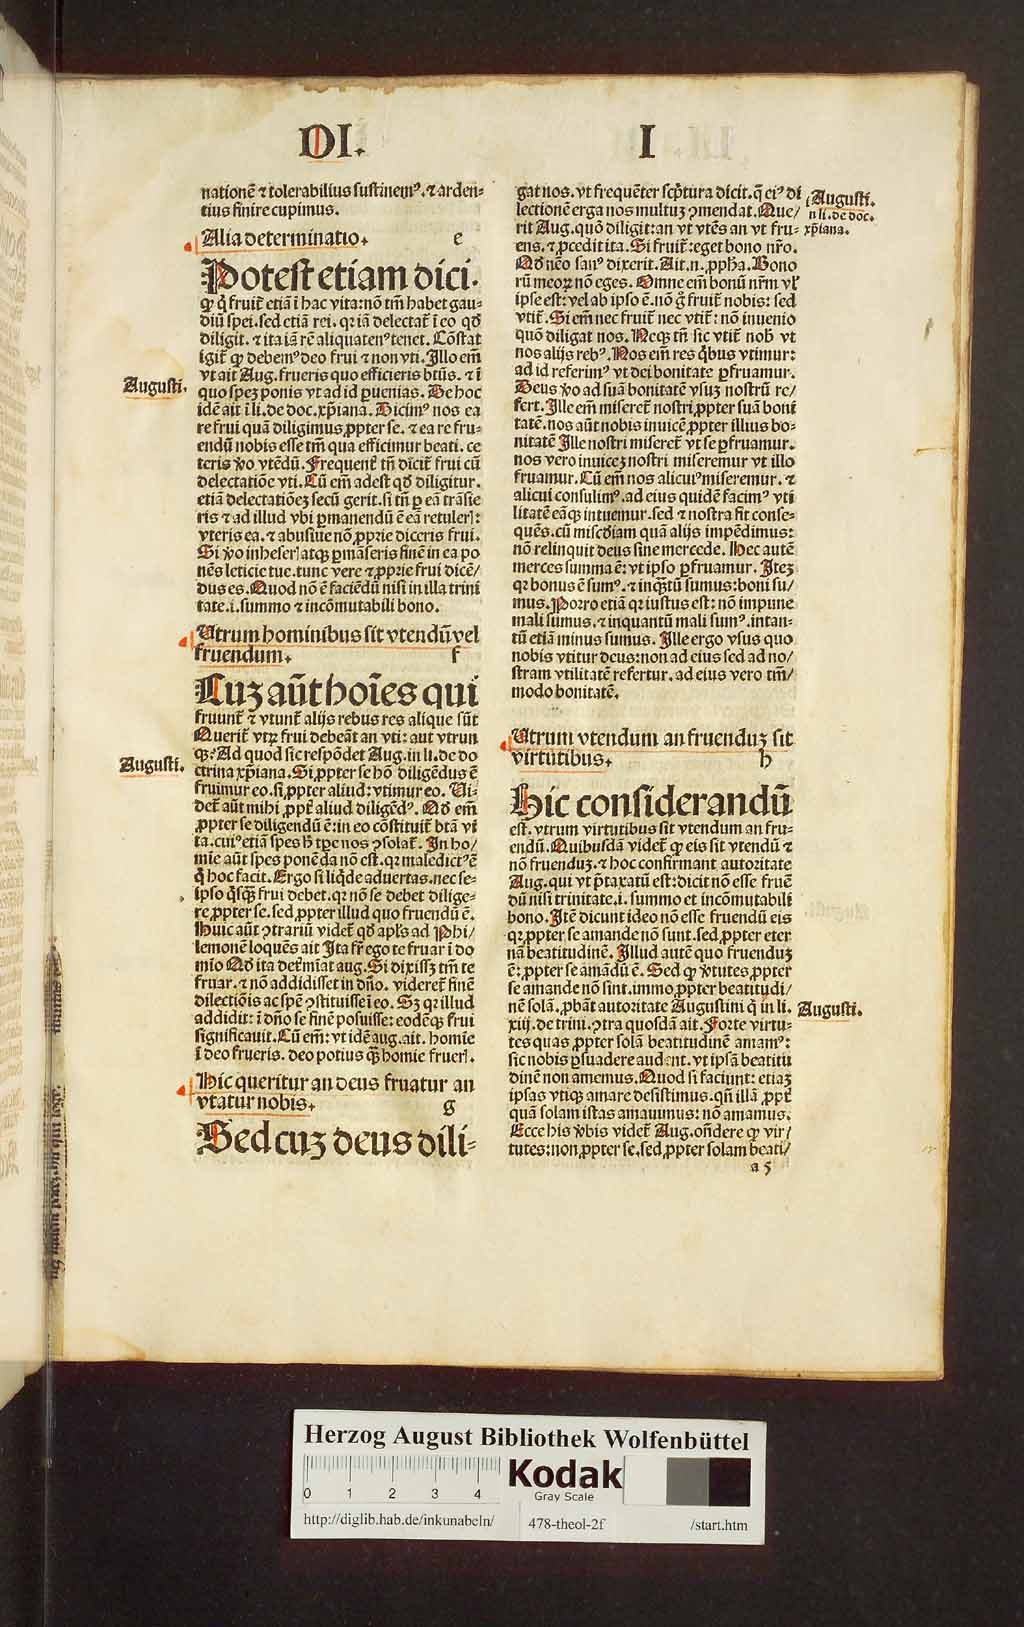 DI. I
nationē ⁊ tolerabilius sustinemꝰ. ⁊ arden-
tius finire cupimus.
Alia determinatio. e
Potest etiam dici.
ꝙ q̇ fruit̄ etiā ī hac vita: nō tm̄ habet gau-
diū spei. sed etiā rei. qꝛ iā delectat̄ ī eo qd̄
diligit. ⁊ ita iā rē aliquatenꝰ tenet. Cōstat
igit̄ ꝙ debemꝰ deo frui ⁊ non vti. Illo em̄
Augusti.
vt ait Aug. frueris quo efficieris btūs. ⁊ ī
quo spez ponis vt ad id ꝑuenias. De hoc
idē ait ī li. de doc. xp̄iana. Dicimꝰ nos ea
re frui quā diligimus ꝓpter se. ⁊ ea re fru-
endū nobis esse tm̄ qua efficimur beati. ce
teris v̄o vtēdū. Frequent̄ tn̄ dicit̄ frui cū
delectatiōe vti. Cū em̄ adest qd̄ diligitur.
etiā delectatiōez secū gerit. si tn̄ ꝑ eā trāsie
ris ⁊ ad illud vbi ꝑmanendū ē eā retulerꝭ:
vteris ea. ⁊ abusiue nō ꝓprie diceris frui.
Si v̄o inheserꝭ atqꝫ ꝑmāseris finē in ea po
nēs leticie tue. tunc vere ⁊ ꝓprie frui dicē/
dus es. Quod nō ē faciēdū nisi in illa trini
tate. i. summo ⁊ incōmutabili bono.
Utrum hominibus sit vtendū vel
fruendum. f
Cuz aūt hoīes qui
fruunt̄ ⁊ vtunt̄ alijs rebus res alique sūt
Querit̄ vtꝝ frui debeāt an vti: aut vtrun
Augusti.
qꝫ. Ad quod sic respōdet Aug. in li. de do
ctrina xp̄iana. Si ꝓpter se hō diligēdus ē
fruimur eo. si ꝓpter aliud: vtimur eo. Ui-
det̄ aūt mihi ꝓpt̄ aliud diligēdꝰ. Qd̄ em̄
ꝓpter se diligendū ē: in eo cōstituit̄ btā vi
ta. cuiꝰ etiā spes h̄ tꝑe nos ꝯsolat̄. In ho/
mīe aūt spes ponēda nō est. qꝛ maledictꝰ ē
q̇ hoc facit. Ergo si liq̇de aduertas. nec se-
ipso q̇sqꝫ frui debet. qꝛ nō se debet dilige-
re ꝓpter se. sed ꝓpter illud quo fruendū ē.
Huic aūt ꝯtrariū videt̄ qd̄ apl̄s ad Phi/
lemonē loquēs ait Ita fr̄ ego te fruar ī do
mīo Qd̄ ita det̄mīat aug. Si dixissꝫ tm̄ te
fruar. ⁊ nō addidisset in dn̄o. videret̄ finē
dilectiōis ac spē ꝯstituisse ī eo. Sꝫ qꝛ illud
addidit: ī dn̄o se finē posuisse: eodēqꝫ frui
significauit. Cū em̄: vt idē aug. ait. homīe
ī deo frueris. deo potius q̄ꝫ homīe fruerꝭ.
Hic queritur an deus fruatur an
vtatur nobis. g
Sed cuz deus dili-
gat nos. vt frequēter sc̄ptura dicit. q̄ eiꝰ di
lectionē erga nos multuz ꝯmendat. Que/
Augusti.
n li. de doc.
xp̄iana.
rit Aug. quō diligit: an vt vtēs an vt fru-
ens. ⁊ ꝓcedit ita. Si fruit̄: eget bono nr̄o.
Qd̄ nēo sanꝰ dixerit. Ait. n. ꝓph̄a. Bono
rū meoꝝ nō eges. Omne em̄ bonū nr̄m vl̓
ipse est: vel ab ipso ē. nō g̊ fruit̄ nobis: sed
vtit̄. Si em̄ nec fruit̄ nec vtit̄: nō inuenio
quō diligat nos. Neqꝫ tn̄ sic vtit̄ nob̓ vt
nos alijs rebꝰ. Nos em̄ res q̇bus vtimur:
ad id referimꝰ vt dei bonitate ꝑfruamur.
Deus v̄o ad suā bonitatē vsuz nostrū re/
fert. Ille em̄ miseret̄ nostri ꝓpter suā boni
tatē. nos aūt nobis inuicē ꝓpter illius bo-
nitatē Ille nostri miseret̄ vt se ꝑfruamur.
nos vero inuicez nostri miseremur vt illo
fruamur. Cū em̄ nos alicuiꝰ miseremur. ⁊
alicui consulimꝰ. ad eius quidē facimꝰ vti
litatē eāqꝫ intuemur. sed ⁊ nostra fit conse-
quēs. cū misc̄diam quā alijs impēdimus:
nō relinquit deus sine mercede. Hec autē
merces summa ē: vt ipso ꝑfruamur. Itez
qꝛ bonus ē sumꝰ. ⁊ inq̄tū sumus: boni su/
mus. Porro etiā qꝛ iustus est: nō impune
mali sumus. ⁊ inquantū mali sumꝰ. intan-
tū etiā minus sumus. Ille ergo vsus quo
nobis vtitur deus: non ad eius sed ad no/
stram vtilitatē refertur. ad eius vero tm̄/
modo bonitatē.
Utrum vtendum an fruenduz sit
virtutibus. h
Hic considerandū
est. vtrum virtutibus sit vtendum an fru-
endū. Quibusdā videt̄ ꝙ eis sit vtendū ⁊
nō fruenduz. ⁊ hoc confirmant autoritate
Aug. qui vt p̄taxatū est: dicit nō esse fruē
dū nisi trinitate. i. summo et incōmutabili
bono. Itē dicunt ideo nō esse fruendū eis
qꝛ ꝓpter se amande nō sunt. sed ꝓpter eter
nā beatitudinē. Illud autē quo fruenduz
ē: ꝓpter se amādū ē. Sed ꝙ v̄tutes ꝓpter
se amande nō sint. immo ꝓpter beatitudi/
nē solā. ꝓbāt autoritate Augustini q̇ in li.
Augusti.
xiij. de trini. ꝯtra quosdā ait. Forte virtu-
tes quas ꝓpter solā beatitudinē amamꝰ:
sic nobis ꝑsuadere audent. vt ipsā beatitu
dinē non amemus. Quod si faciunt: etiaz
ipsas vtiqꝫ amare desistimus. qn̄ illā ꝓpt̄
quā solam istas amauimus: nō amamus.
Ecce his v̄bis videt̄ Aug. on̄dere ꝙ vir/
tutes: non ꝓpter se. sed ꝓpter solam beati/
a 5
Herzog August Bibliothek Wolfenbüttel
0 1 2 3 4
Kodak
Gray Scale
http://diglib.hab.de/inkunabeln/ 478-theol-2f /start.htm